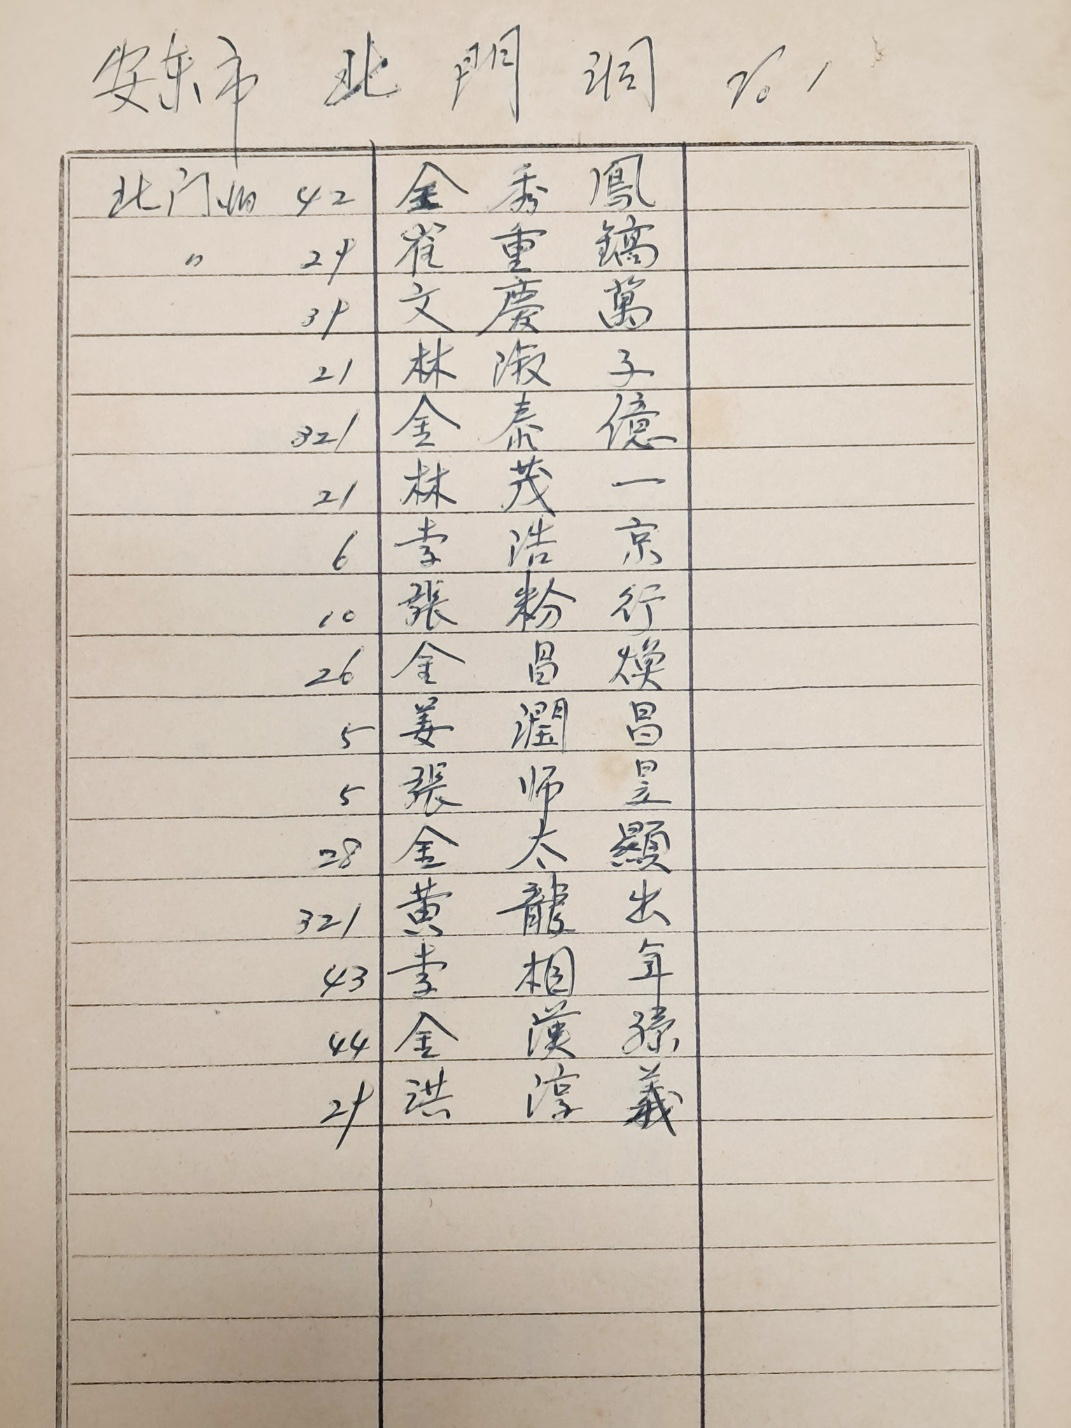 安东市 北門洞 No 1
北门洞 42 金秀鳳
〃 29 崔重鎬
39 文慶萬
21 林淑子
321 金泰億
21 林茂一
6 李浩京
10 張粉行
26 金昌煥
5 姜潤昌
5 張师昱
28 金太顯
321 黄龍出
43 李相年
44 金漢孫
29 洪淳義